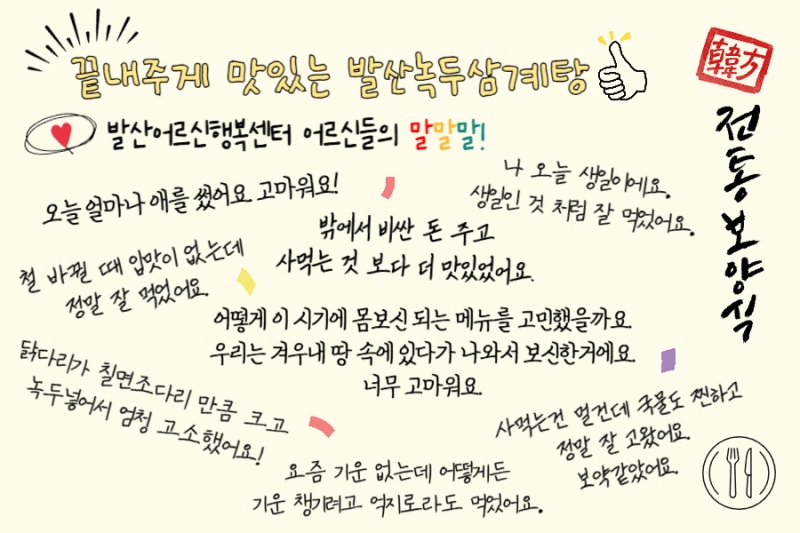 끝내주게 맛있는 발산녹두삼계탕
韓方
전통보양식
발산어르신행복센터 어르신들의 말말말!
오늘 얼마나 애를 썼어요 고마워요!
나 오늘 생일이에요.
생일인 것 처럼 잘 먹었어요.
밖에서 비싼 돈 주고
사먹는 것 보다 더 맛있었어요.
철 바뀔 때 입맛이 없는데
정말 잘 먹었어요.
어떻게 이 시기에 몸보신 되는 메뉴를 고민했을까요
우리는 겨우내 땅 속에 있다가 나와서 보신한거에요.
너무 고마워요.
닭다리가 칠면조다리 만큼 크고
녹두넣어서 엄청 고소했어요!
사먹는건 멀건데 국물도 찐하고
정말 잘 고왔어요.
보약같았어요.
요즘 기운 없는데 어떻게든
기운 챙기려고 억지로라도 먹었어요.